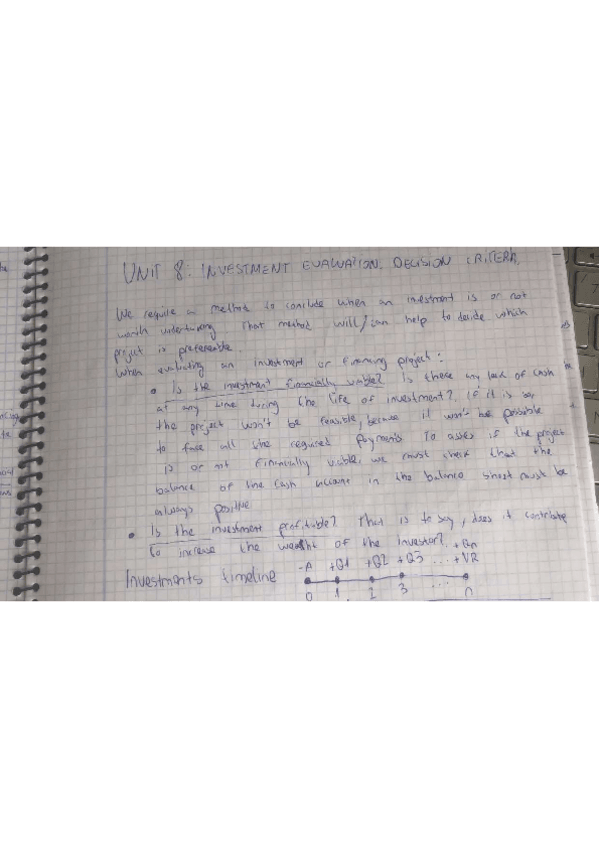 UNIT 8: INVESTMENT EVALUATION. DECISION CRITERIA.
We require a method to conclude when an investment is or not
worth undertaking. That method will/can help to decide which
project is prefereable.
When evaluating an investment or financing project:
• Is the investment financially viable? Is there any lack of cash
at any time during the life of investment? If it is so,
the project won't be feasible, because it won't be possible
to face all the required payments. To asses if the project
is or not financially viable, we must check that the
balance of the cash account in the balance sheet must be
always positive
• Is the investment profitable? That is to say, does it contribute
to increase the wealht of the investor?
Investments timeline -A +Q1 +Q2 +Q3 ... +Qn +VR
0 1 2 3 ... n